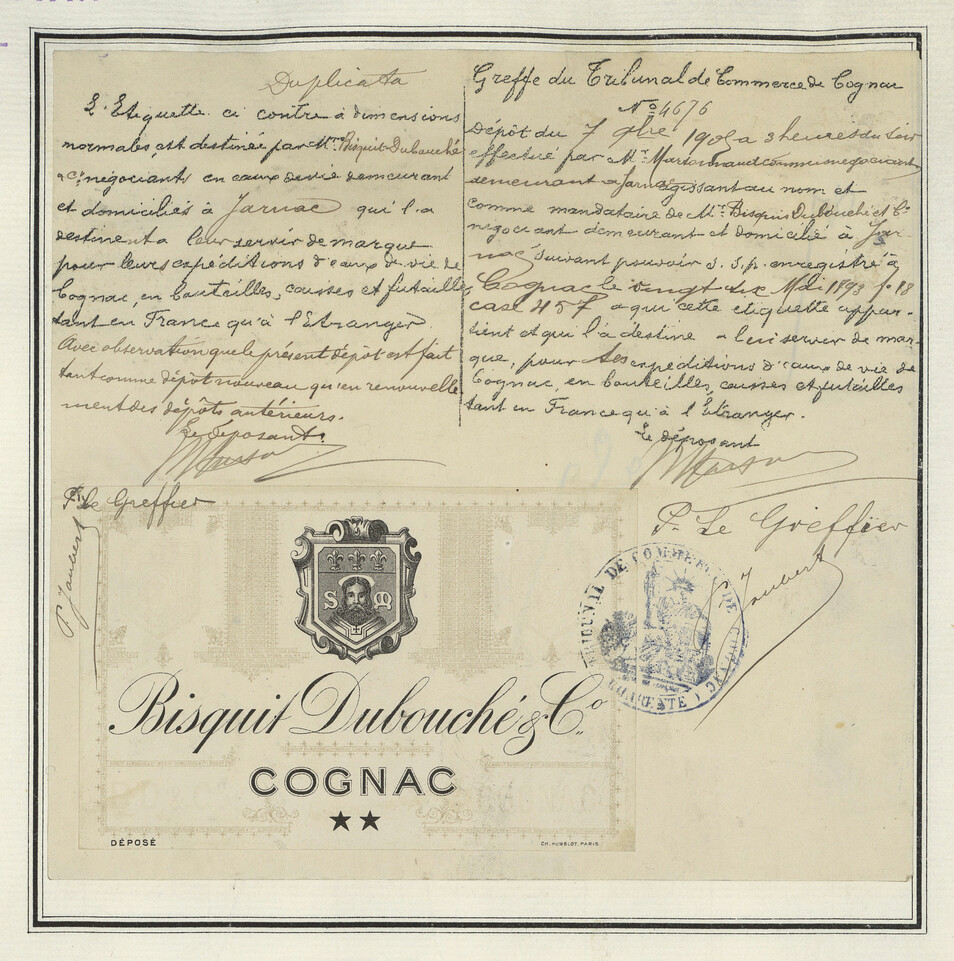 Duplicata
L'Etiquette ci contre à dimensions
normales, est destinée par Mrs Bisquit Dubouché
& Cie négociants en eaux de vie demeurant
et domiciliés à Jarnac qui l'a
destinent a leur servir de marque
pour leurs expéditions d'eaux de vie de
Cognac, en bouteilles, caisses et futailles,
tant en France qu'à l'Etranger.
Avec observation que le présent dépôt est fait
tant comme dépôt nouveau qu'en renouvelle
ment des dépôts antérieurs.
Le déposant.
Pr Le Greffier
P. Joubert
Greffe du Tribunal de Commerce de Cognac
No 4676
Dépôt du 7 9bre 190 a 3 heures du soir
effectué par Mr négociant
demeurant a Jarnac agissant au nom et
comme mandataire de Mrs Bisquit Dubouché et Cie
négociant demeurant et domicilié à Jar-
nac, suivant pouvoir s. s. p. enregistré à
Cognac le vingt six Mai 1893 fo 18
case 457 a qui cette étiquette appar-
tient et qui l'a destine a leur servir de mar-
que, pour ses expéditions d'eaux de vie de
Cognac, en bouteilles, caisses et futailles
tant en France qu'à l'Etranger.
Le déposant
P. Le Greffier
P. Joubert
TRIBUNAL DE COMMERCE DE COGNAC
(CHARENTE)
S M
Bisquit Dubouché & Co.
COGNAC
★★
DÉPOSÉ
CH. HUMBLOT. PARIS.